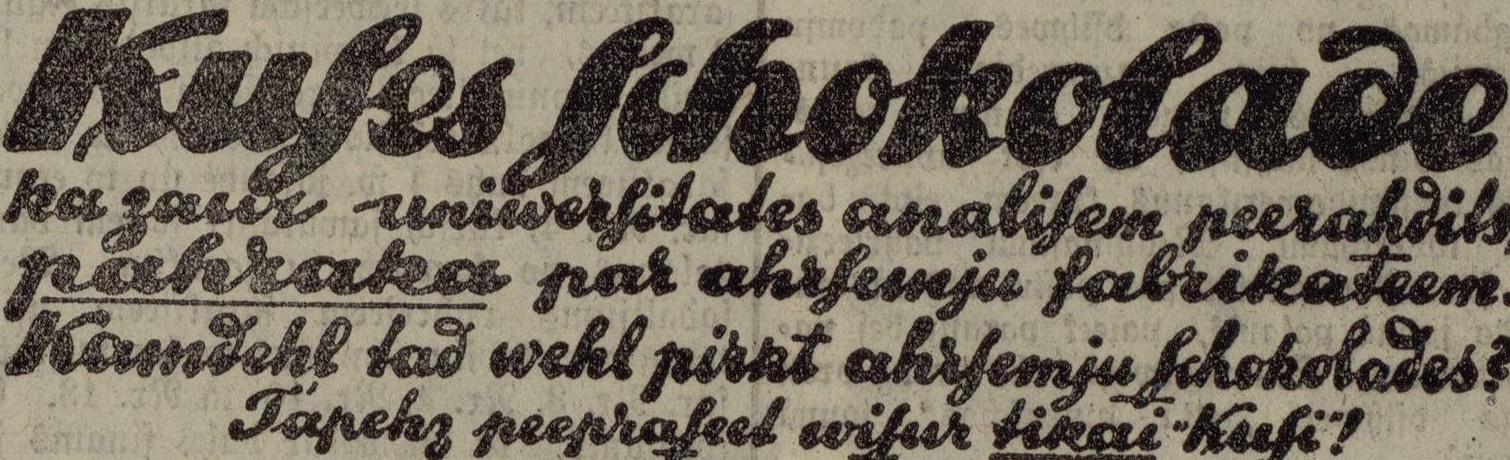 Kuſes ſchokolade
ka zaur uniwerſitates analiſem peerahdits
pahraka par ahrſemju fabrikateem
Kamdehl tad wehl pirkt ahrſemju ſchokolades?
Tapehz peepraſeet wiſur tikai "Kuſi"!